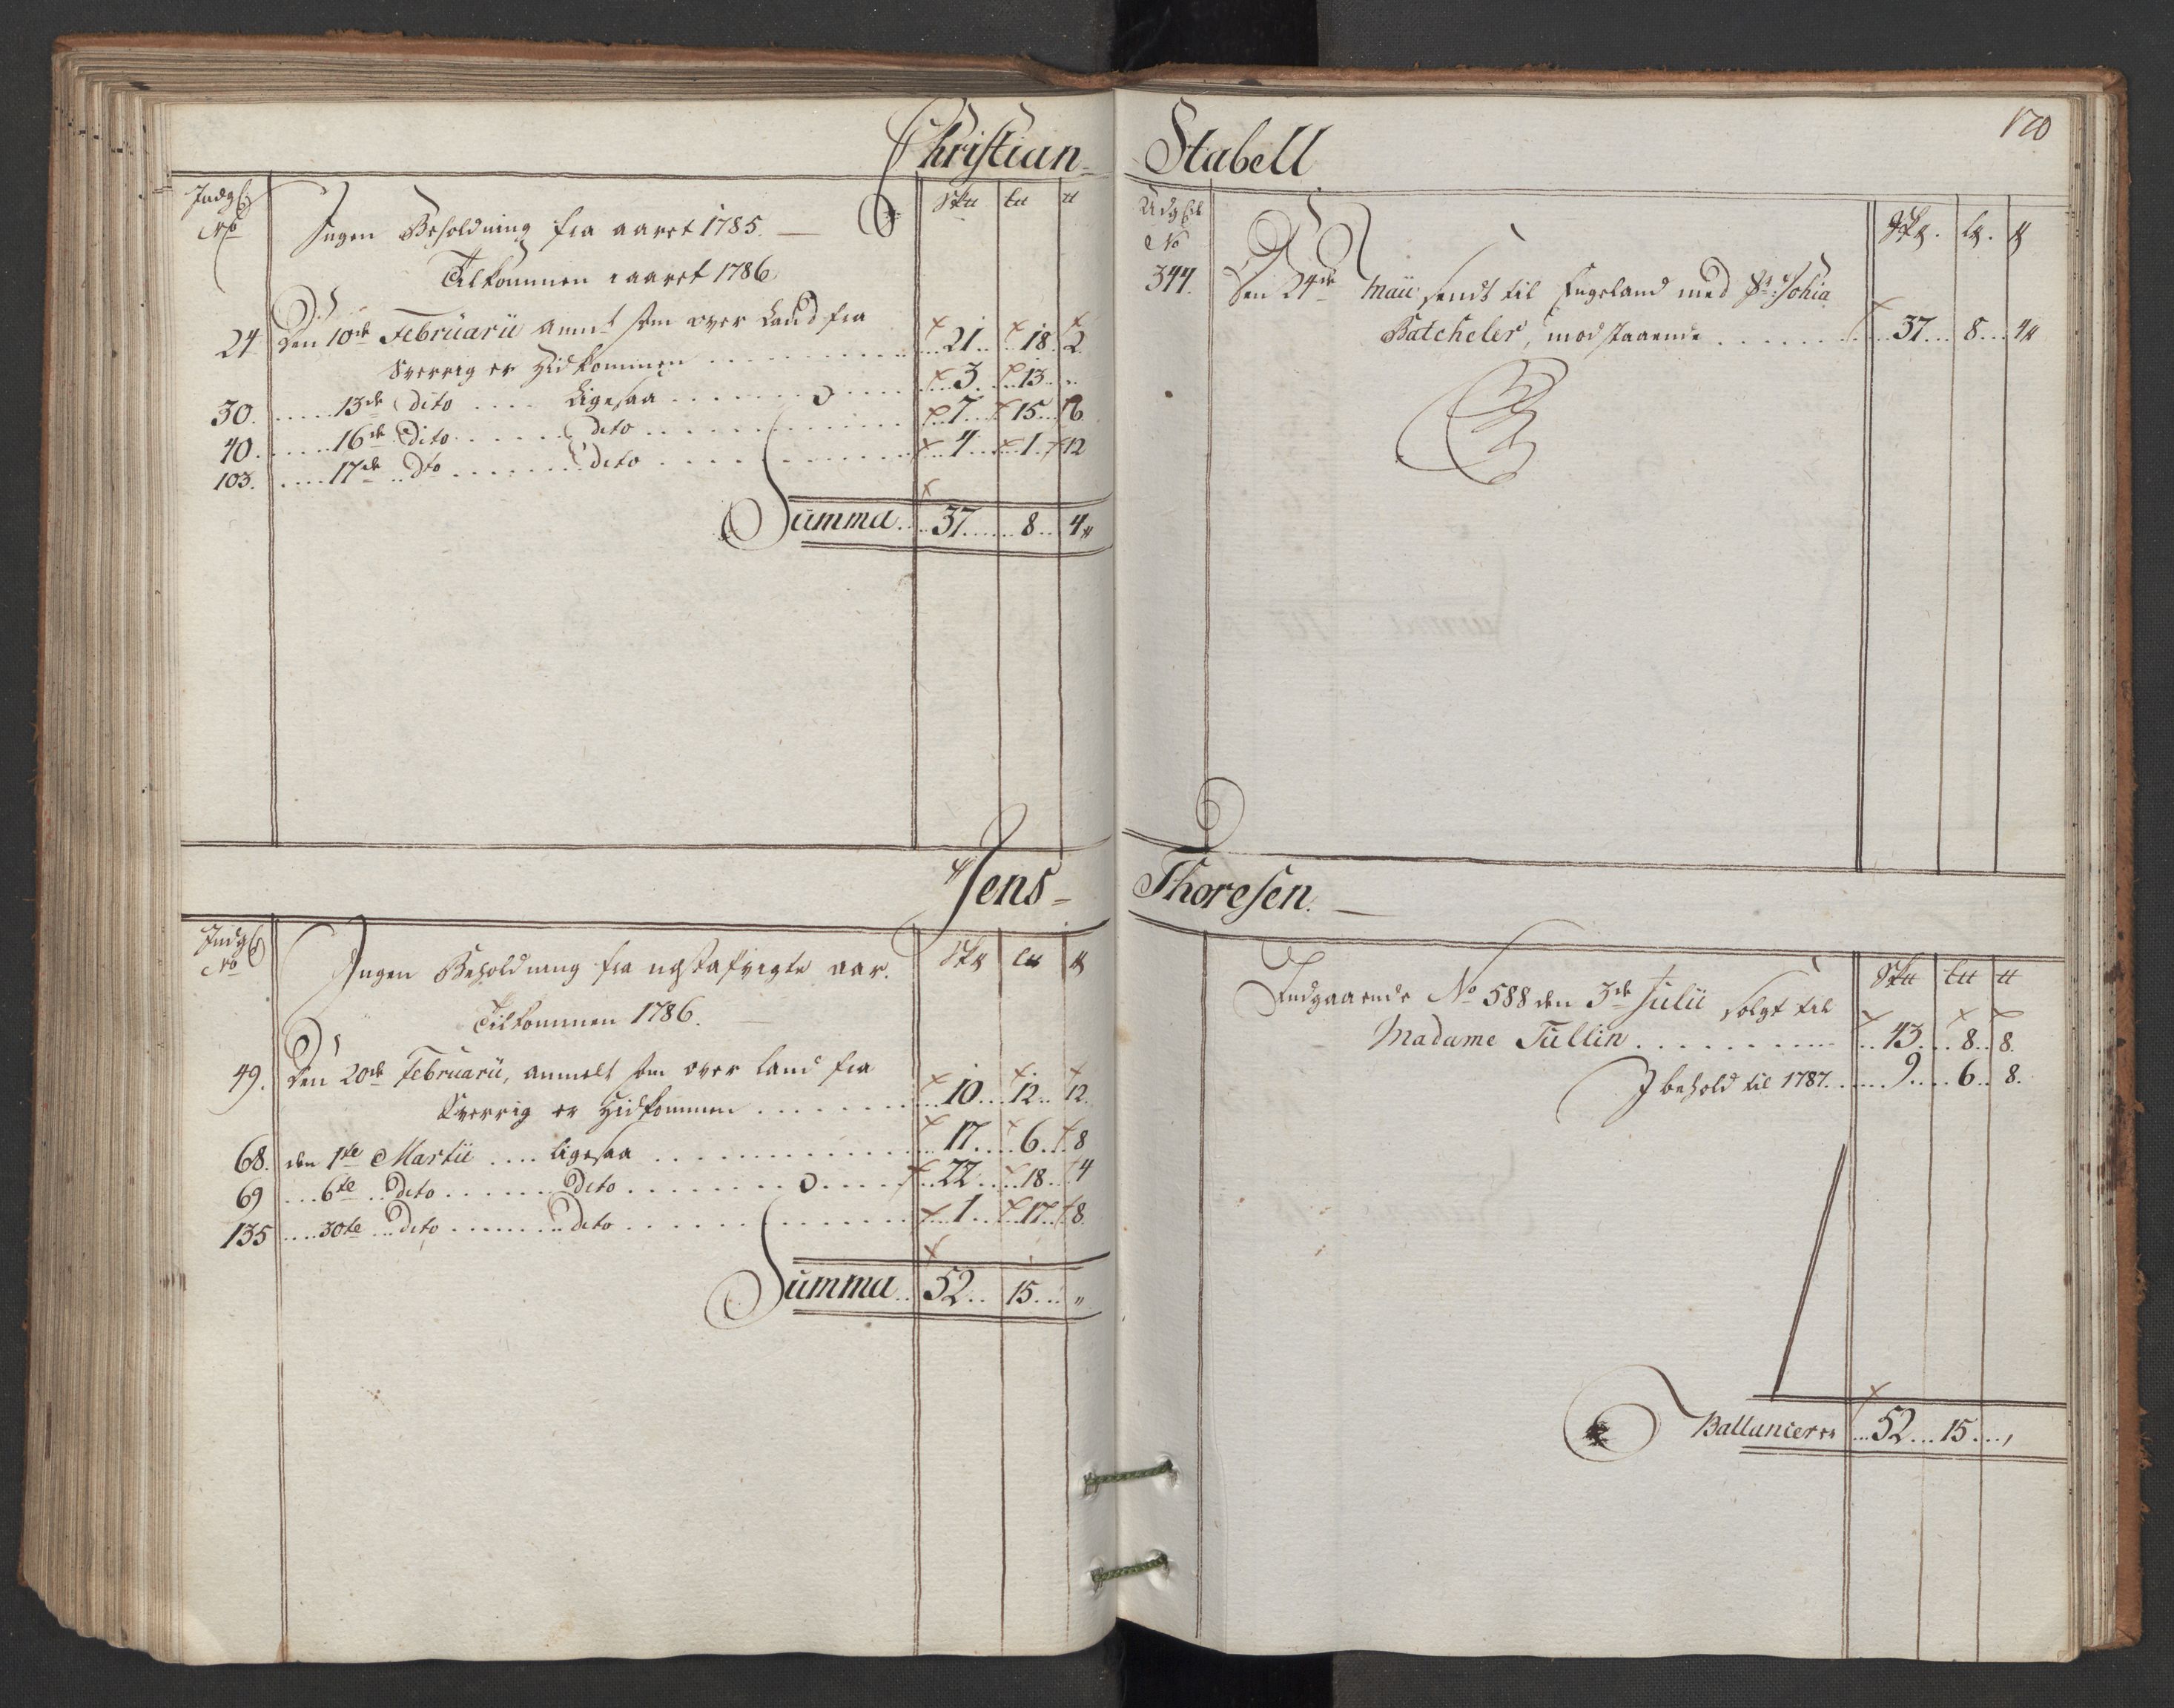 Christian= Stabell
170
Indg:
No
Sk℔ L℔ ℔
Ingen Beholdning fra aaret 1785. —
Tilkommen i aaret 1786
24 Den 10de Februarii anmt som over Land fra
Sverrig er Hidkommen . . . 21 . . 18 2
30. . . . . 13de Dito . . . . Ligesaa . . . . . 3 . . 13 . . „
40. . . . . 16de Dito . . . . dito . . . . . 7 . . 15 . . 6
103. . . . . 17de . . Dto . . . . dito . . . . . 4 . . 1 . 12
Summa . . 37 . . . . 8 . . 4 „
Udg
No
Sk℔. L℔. ℔
344. Den 24de Maii sendt til Engeland med Sr: Johia
Batcheler, modstaaende . . . . . . 37 . . 8 . . . 4 „
Jens= Thoresen. —
Indg:
No
Sk℔ L℔ ℔
Ingen Beholdning fra nestafvigte aar.
Tilkommen 1786.
49. Den 20de Februarii, anmelt som over land fra
Sverrig er Hidkommen . . . . . . 10 . . 12 . . 12.
68. den 1te Martii . . . . ligesaa . . . . . . 17 . . . 6 . . 8
69 . . . 6te . . Dito . . . . . . Dito . . . . . . 22 . . . 18 . . 4
135 . . . . 30te . . Dito . . . . . . Dito . . . . . . 1 . . 17 . . 8
Summa . . 52 . . 15 . . . „
Sk℔ L℔ ℔
Indgaaende No 588 den 3de Julii solgt til
Madame Tullin . . . . . . . . 43 . . . 8 . . 8.
I behold til 1787. . . . . 9 . . . 6 . . 8.
Ballancerer . . . 52 . . . 15 . . . ,